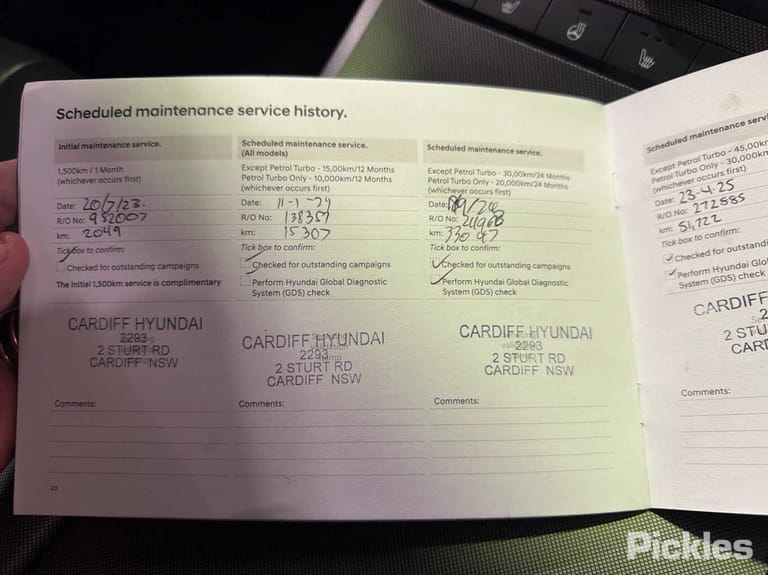 Scheduled maintenance service history.
Initial maintenance service.
1,500km / 1 Month
(whichever occurs first)
Date: 20/7/23.
R/O No: 952007
km: 2049
Tick box to confirm:
Checked for outstanding campaigns
The initial 1,500km service is complimentary
CARDIFF HYUNDAI
2293
2 STURT RD
CARDIFF NSW
Comments:
20
Scheduled maintenance service.
(All models)
Except Petrol Turbo - 15,00km/12 Months
Petrol Turbo Only - 10,000km/12 Months
(whichever occurs first)
Date: 11-1-24
R/O No: 138357
km: 15307
Tick box to confirm:
Checked for outstanding campaigns
Perform Hyundai Global Diagnostic
System (GDS) check
CARDIFF HYUNDAI
2293
2 STURT RD
CARDIFF NSW
Comments:
Scheduled maintenance service.
Except Petrol Turbo - 30,00km/24 Months
Petrol Turbo Only - 20,000km/24 Months
(whichever occurs first)
Date:
R/O No:
km: 33047
Tick box to confirm:
Checked for outstanding campaigns
Perform Hyundai Global Diagnostic
System (GDS) check
CARDIFF HYUNDAI
2293
2 STURT RD
CARDIFF NSW
Comments:
Scheduled maintenance servi
Except Petrol Turbo - 45,00k
Petrol Turbo Only - 30,000k
(whichever occurs first)
Date: 23-4-25
R/O No: 272885
km: 51,722
Tick box to confirm:
Checked for outstandi
Perform Hyundai Glo
System (GDS) check
CARDIFF
2
2 STU
CARD
Comments:
Pickles